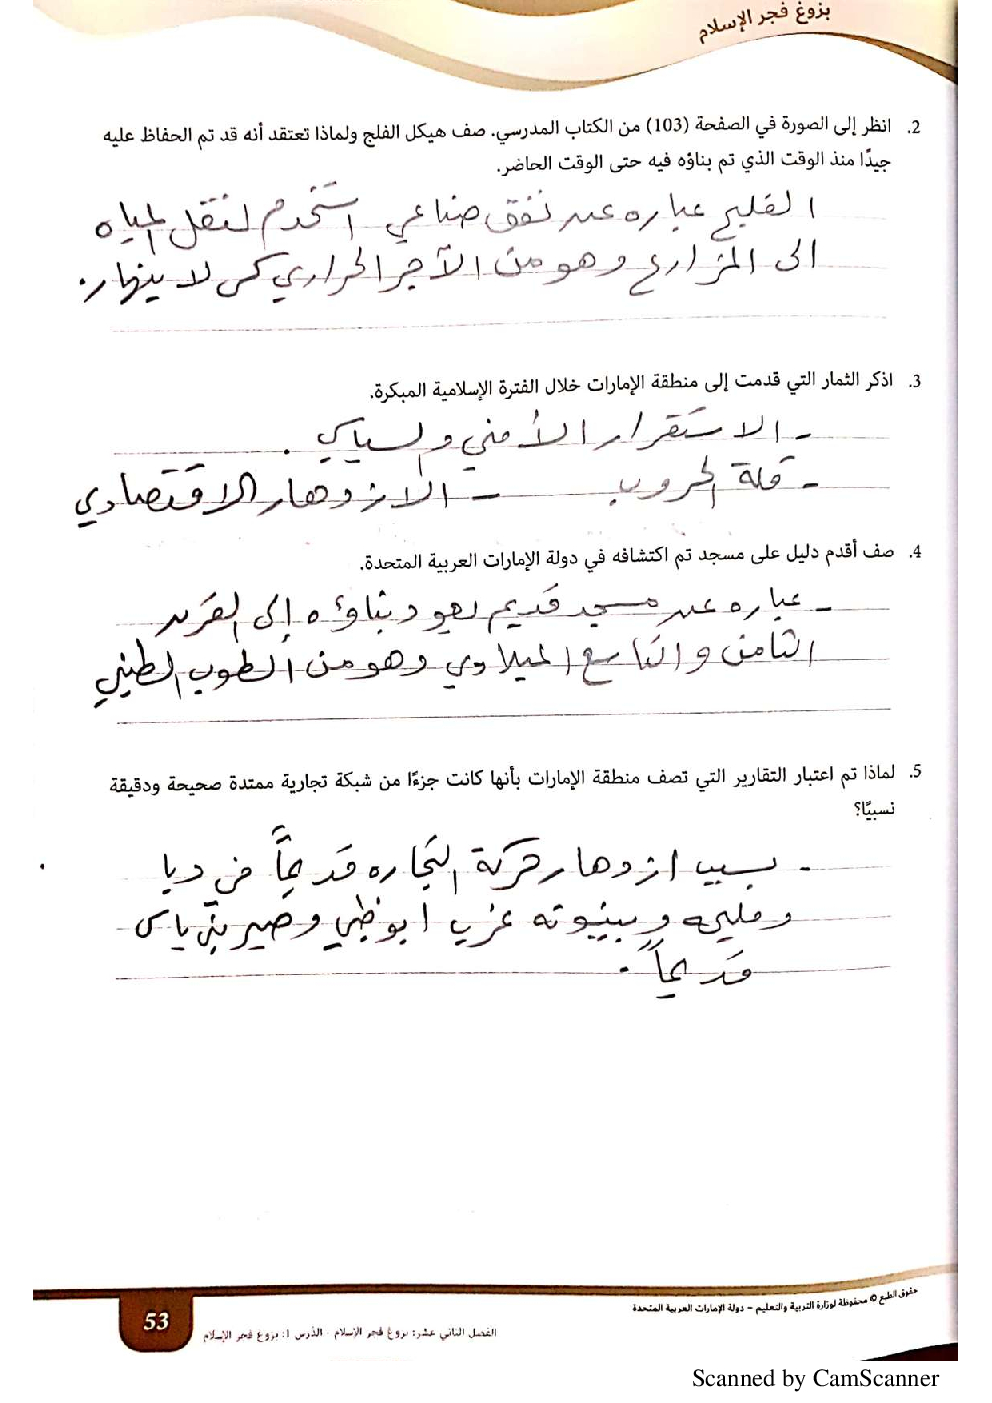 بزوغ فجر الإسلام
2. انظر إلى الصورة في الصفحة (103) من الكتاب المدرسي. صف هيكل الفلج ولماذا تعتقد أنه قد تم الحفاظ عليه
جيدًا منذ الوقت الذي تم بناؤه فيه حتى الوقت الحاضر.
الفليج عباره عن نفق صناعي استخدم لنقل المياه
الى المزارع وهو من الآجر الحراري كي لا ينهار.
3. اذكر الثمار التي قدمت إلى منطقة الإمارات خلال الفترة الإسلامية المبكرة.
- الاستقرار الأمني والسياسي.
- قلة الحروب - الازدهار الاقتصادي
4. صف أقدم دليل على مسجد تم اكتشافه في دولة الإمارات العربية المتحدة.
- عباره عن مسجد قديم يعود بناؤه إلى القرن
الثامن والتاسع الميلادي وهو من الطوب الطيني
5. لماذا تم اعتبار التقارير التي تصف منطقة الإمارات بأنها كانت جزءًا من شبكة تجارية ممتدة صحيحة ودقيقة
نسبيًا؟
- بسبب ازدهار حركة التجاره قديماً في دبا
ومليحه وبينونه غرب ابوظبي وصير بني ياس
قديماً.
حقوق الطبع © محفوظة لوزارة التربية والتعليم - دولة الإمارات العربية المتحدة
الفصل الثاني عشر: بزوغ فجر الإسلام - الدرس 1: بزوغ فجر الإسلام
53
Scanned by CamScanner